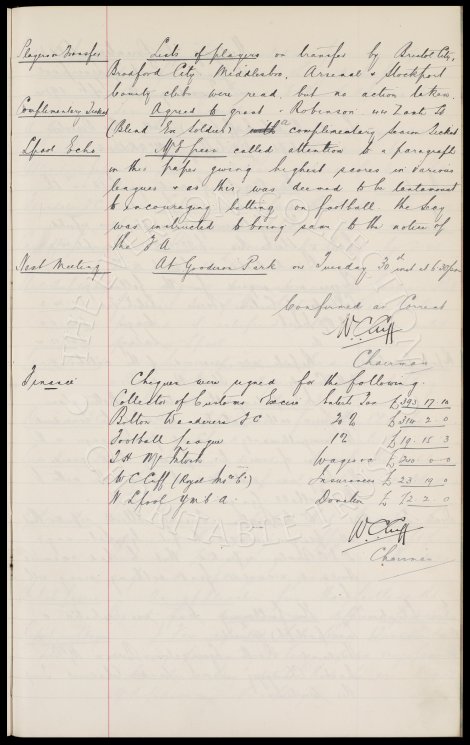 Players on Transfer Lists of players on transfer by Bristol City,
Bradford City Middlesbro, Arsenal & Stockport
County club were read but no action taken.
Complimentary Ticket Agreed to grant Robinson Zante St
(Blind Ex Soldier) with a complimentary Season Ticket
L'pool Echo Mr Green called attention to a paragraph
in this paper giving highest scores in various
leagues & as this was deemed to be tantamount
to encouraging betting on football the Secy
was instructed to bring same to the notice of
the F A.
Next Meeting At Goodison Park on Tuesday 30th inst at 6.30pm
Confirmed as Correct
W.C. Cuff
Chairman
Finance Cheques were signed for the following.
Collector of Customs Excise Entert Tax £ 393. 17. 10
Bolton Wanderers F C 20% £ 314. 2. 0
Football League 1% £ 19. 15. 3
T. H. McIntosh Wages £ 0. 0
W C Cuff (Royal Ince Co) Insurances £ 23. 19. 0
N L'pool Y m C A. Donation £ 2. 0
W.C. Cuff
Chairman
THE
CHARITABLE